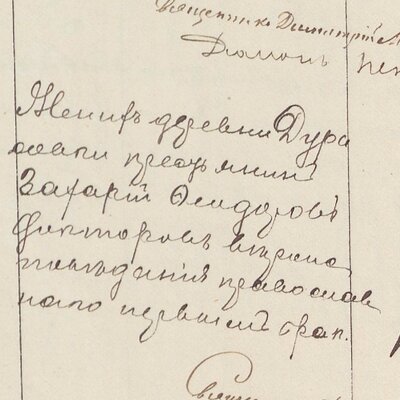 Священникъ Димитрій
Дьяконъ
Женихъ деревни Дура
совки крестьянинъ
Захарій Ѳеодоровъ
Викторовъ вѣроис
повѣданія православ
наго первымъ брак.